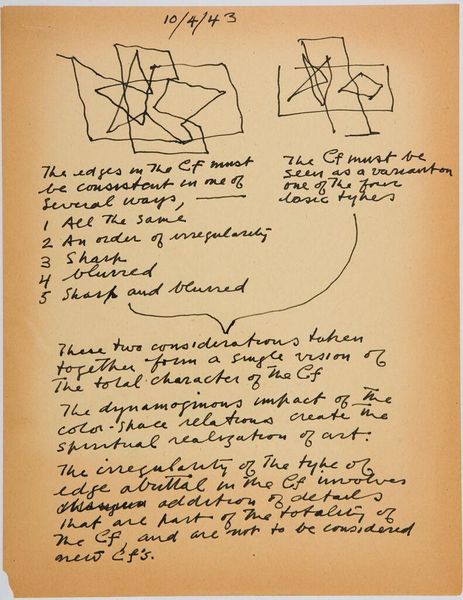 10/4/43
The edges in the Cf must
be consistent in one of
several ways,
1 All the same
2 An order of irregularity
3 Sharp
4 blurred
5 Sharp and blurred
The Cf must be
seen as a variant on
one of the four
basic types
These two considerations taken
together form a single vision of
the total character of the Cf
The dynamoginous impact of the
color-space relations create the
spiritual realization of art.
The irregularity of the type of
edge abuttal in the Cf involves
addition of details
that are part of the totality of
the Cf, and are not to be considered
new Cf's.